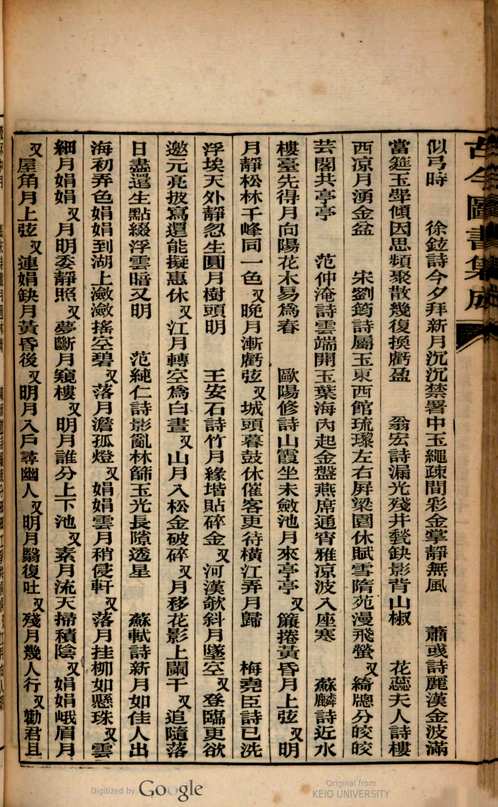 古今圖書集成
似弓時　徐鉉詩今夕拜新月沉沉禁署中玉繩疎間彩金掌靜無風　蕭彧詩麗漢金波滿
當筵玉斝傾因思頻聚散幾復換虧盈　翁宏詩漏光殘井甃缺影背山椒　花蕊夫人詩樓
西涼月湧金盆　宋劉筠詩屬玉東西館琉璃左右屏梁園休賦雪隋苑漫飛螢又綺牕分皎皎
芸閣共亭亭　范仲淹詩雲端開玉葉海內起金盤燕席通宵雅凉波入座寒　蘇麟詩近水
樓臺先得月向陽花木易爲春　歐陽修詩山霞坐未斂池月來亭亭又簾捲黃昏月上弦又明
月靜松林千峰同一色又晚月漸虧弦又城頭暮鼓休催客更待橫江弄月歸　梅堯臣詩已洗
浮埃天外靜忽生圓月樹頭明　王安石詩竹月緣堦貼碎金又河漢欹斜月墜空又登臨更欲
邀元亮披寫還能擬惠休又江月轉空爲白晝又山月入松金破碎又月移花影上闌干又追隨落
日盡還生點綴浮雲暗又明　范純仁詩影亂林篩玉光長隙透星　蘇軾詩新月如佳人出
海初弄色娟娟到湖上瀲瀲搖空碧又落月澹孤燈又娟娟雲月稍侵軒又落月挂柳如懸珠又雲
細月娟娟又月明委靜照又夢斷月窺樓又明月誰分上下池又素月流天掃積陰又娟娟峨眉月
又屋角月上弦又連娟缺月黃昏後又明月入戶尋幽人又明月翳復吐又殘月幾人行又勸君且
Digitized by Google
Original from
KEIO UNIVERSITY